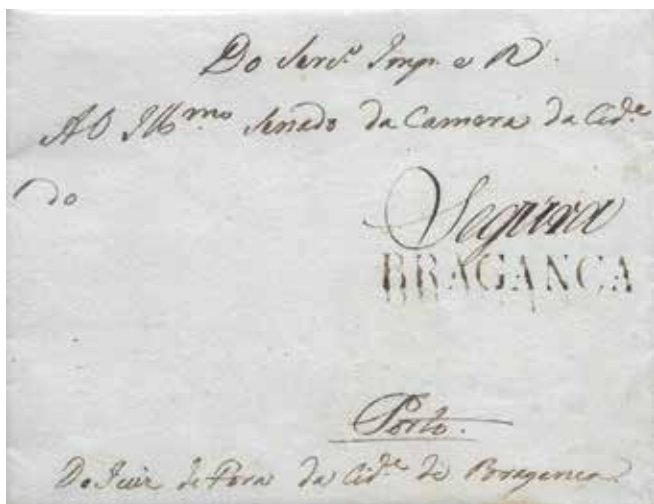 Do Serv.º Imp. e R.
Ao Ill.mo Senado da Camera da Cid.e
do
Segura
BRAGANCA
Porto.
Do Juiz de Fora da Cid.e de Bragança